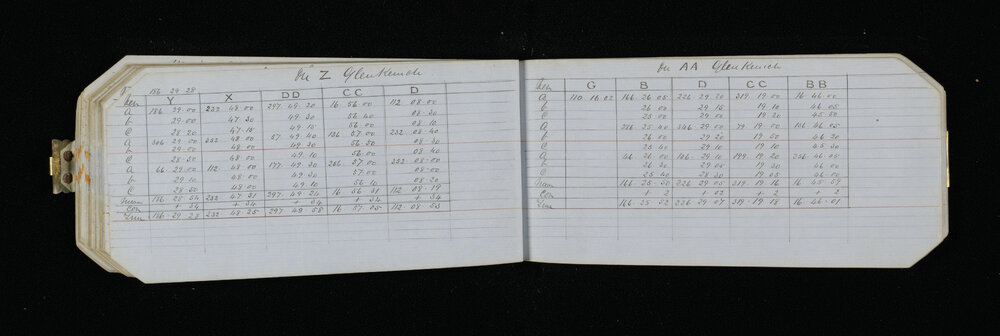 On Z Glenkenich
186 29 28
Y X DD CC D
A 186 29.00 232 48.00 297 49.20 16 56.00 112 08.00
b 29.00 47 30 49 30 56 40 08 30
C 28 20 47.15 49 15 56 00 08 10
A 306 29.00 352 48 00 57 49.40 136 57.00 232 08.40
b 29.00 48.00 49 30 56.30 08 30
C 28 50 48.00 49 10 56 00 08 40
A 66 29 00 112 48 00 177 49.30 256 57 00 352 08.00
b 29 10 48.00 49 30 57.00 08 00
C 28 50 48.00 49.10 56 10 08.20
Mean 186 28 54 232 47 51 297 49.24 16 56 31 112 08.19
Con + 34 + 34 + 34 + 34 + 34
True 186 29 28 232 48.25 297 49 58 16 57 05 112 08 53
On AA Glenkenich
G B D CC BB
A 110 16 02 166 26 05 226 29.20 319 19 00 16 46 00
b 26 00 29 15 19 10 46 05
C 25 00 29 00 19 20 45 50
A 286 25 40 346 29 00 79 19 00 136 46 05
b 26 00 29 20 19 50 46 20
C 25 40 29 10 19 10 45 30
A 46 26 00 106 29 10 199 19 20 256 46 05
b 26 20 29 05 19 30 46 20
C 25 40 28 30 19 05 46 00
Mean 166 25 50 226 29 05 319 19 16 16 45 59
Con + 2 + 02 + 2 + 2
True 166 25 52 226 29 07 319 19 18 16 46 01